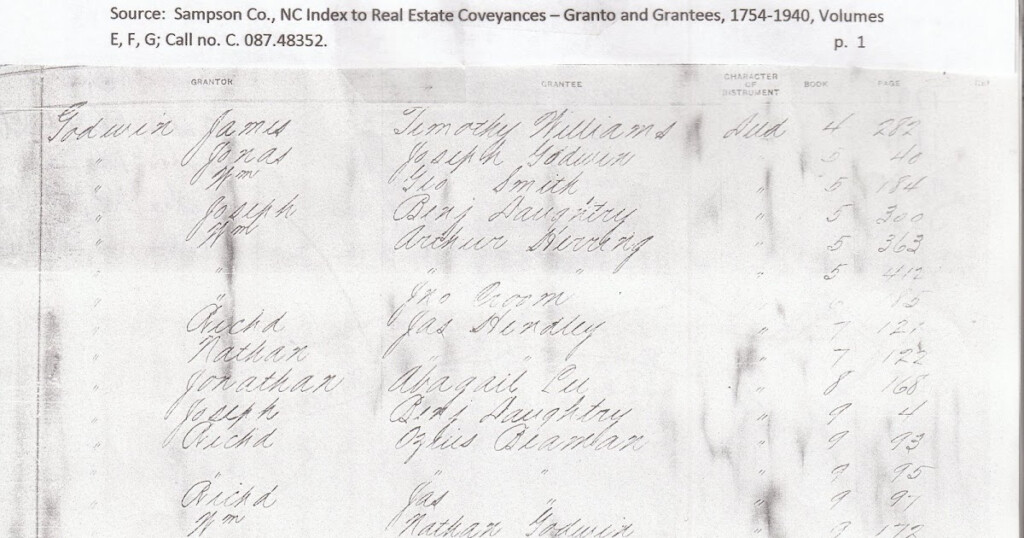 Source: Sampson Co., NC Index to Real Estate Coveyances – Granto and Grantees, 1754-1940, Volumes
E, F, G; Call no. C. 087.48352. p. 1
GRANTOR GRANTEE CHARACTER OF INSTRUMENT BOOK PAGE
Godwin James Timothy Williams Deed 4 282
" Jonas Joseph Godwin " 5 40
" Wm Geo Smith " 5 184
" Joseph Benj Daughtry " 5 300
" Wm Archer Herring " 5 363
" " " " " 5 412
" " Jno Croom " 15
" Richd Jas Hendley " 7 121
" Nathan " " " 7 122
" Jonathan Abagail Lee " 8 168
" Joseph Benj Daughtry " 9 4
" Richd Beaman " 9 93
" " " " 9 95
" Richd Jas " " 9 97
" Wm Nathan Godwin " 9 172